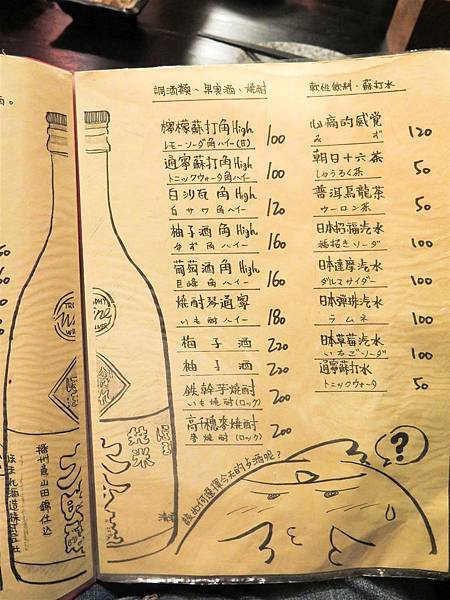 調酒類、果実酒、焼酎
檸檬蘇打角High 100
レモンソーダ角ハイ(甘)
通寧蘇打角High 100
トニックウォータ角ハイ
白沙瓦角High 120
白サワ角ハイー
柚子酒角High 160
ゆず角ハイー
葡萄酒角High 160
巨峰角ハイー
焼酎琴通寧 180
いも酎ハイー
梅子酒 220
柚子酒 220
鉄幹芋焼酎 200
いも焼酎(ロック)
高千穂麥焼酎 200
麥焼酎(ロック)
軟性飲料、蘇打水
心痛的感覚 120
みず
朝日十六茶 50
じゅうろく茶
普洱烏龍茶 50
ウーロン茶
日本招福汽水 100
福招きソーダ
日本達摩汽水 100
ダルマサイダー
日本彈珠汽水 100
ラムネ
日本草莓汽水 100
いちごソーダ
通寧蘇打水 50
トニックウォータ
該如何選擇今天的歺酒呢?
?
純米
播州産山田錦仕込
ほまれ酒造株式会社